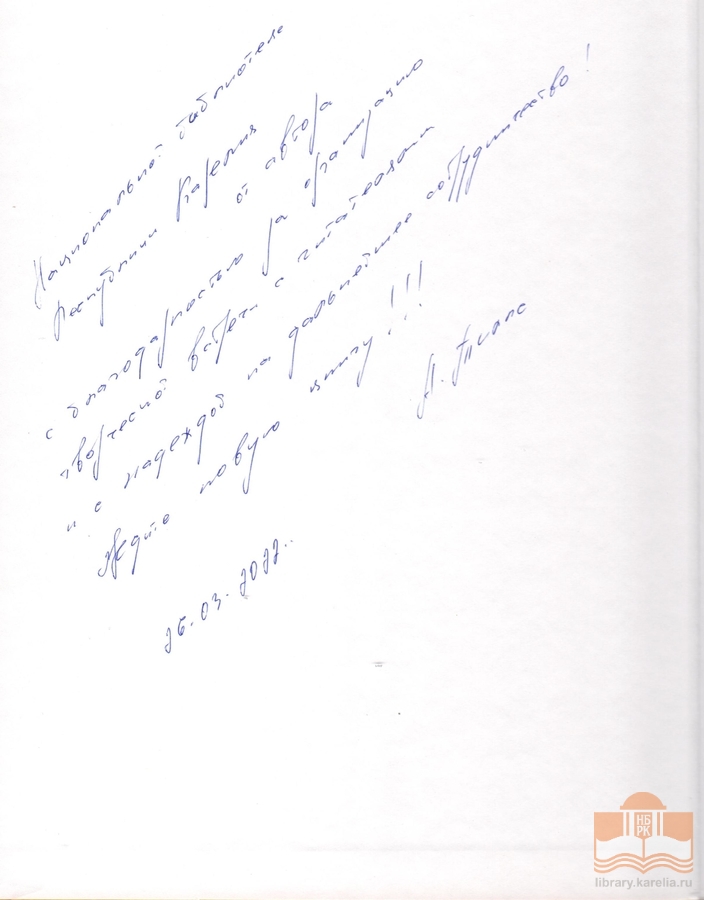 Национальной библиотеке
Республики Карелия
от автора
с благодарностью за организацию
творческой встречи с читателями
и с надеждой на дальнейшее сотрудничество!
Ждите новую книгу!!!
А.
26.03.2022.
НБ
РК
library.karelia.ru